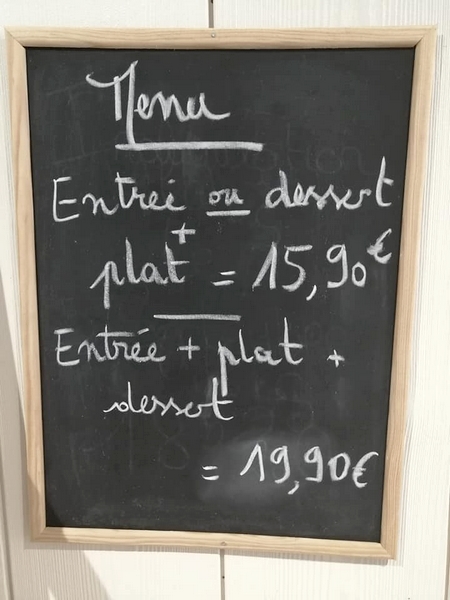 Menu
Entrée ou dessert
+
plat = 15,90€
Entrée + plat +
dessert
= 19,90€